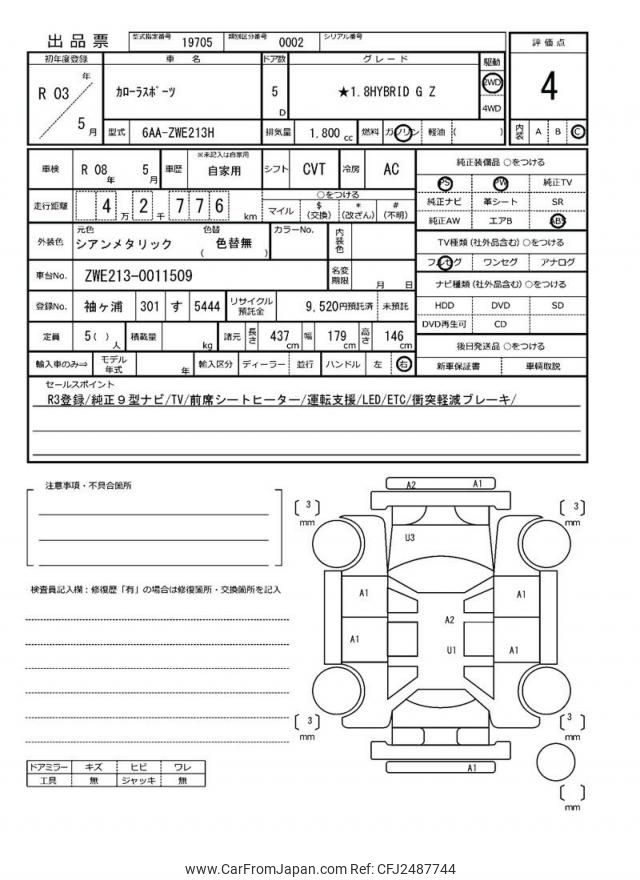 出品票 型式指定番号 19705 類別区分番号 0002 シリアル番号
初年度登録 車名 ドア数 グレード 駆動 評価点
R 03 年 5 月 カローラスポーツ 5 D ★1.8HYBRID G Z 2WD 4WD 4
型式 6AA-ZWE213H 排気量 1.800 cc 燃料 ガソリン 軽油 ( ) 内装 A B C
車検 R 08 年 5 月 車歴 ※未記入は自家用 自家用 シフト CVT 冷房 AC
純正装備品 ○をつける
PS PW 純正TV
純正ナビ 革シート SR
純正AW エアB ABS
走行距離 4 万 2 千 7 7 6 km ○をつける
マイル $ (交換) * (改ざん) # (不明)
外装色 元色 シアンメタリック 色替 ( 色替無 ) カラーNo. 内装色
TV種類 (社外品含む) ○をつける
フルセグ ワンセグ アナログ
車台No. ZWE213-0011509 名変期限 月 日
ナビ種類 (社外品含む) ○をつける
HDD DVD SD
DVD再生可 CD
登録No. 袖ヶ浦 301 す 5444 リサイクル預託金 9,520円預託済 未預託
定員 5 ( ) 人 積載量 kg 諸元 長さ 437 cm 幅 179 cm 高さ 146 cm
後日発送品 ○をつける
新車保証書 車輌取説
輸入車のみ⇒ モデル年式 年 輸入区分 ディーラー 並行 ハンドル 左 右
セールスポイント
R3登録/純正９型ナビ/TV/前席シートヒーター/運転支援/LED/ETC/衝突軽減ブレーキ/
注意事項・不具合箇所
検査員記入欄：修復歴「有」の場合は修復箇所・交換箇所を記入
A2 A1
3 mm 3 mm
U3
A1 A1
A2
A1 U1 A1
3 mm 3 mm
A1
mm
ドアミラー キズ ヒビ ワレ
工具 無 ジャッキ 無
www.CarFromJapan.com Ref: CFJ2487744